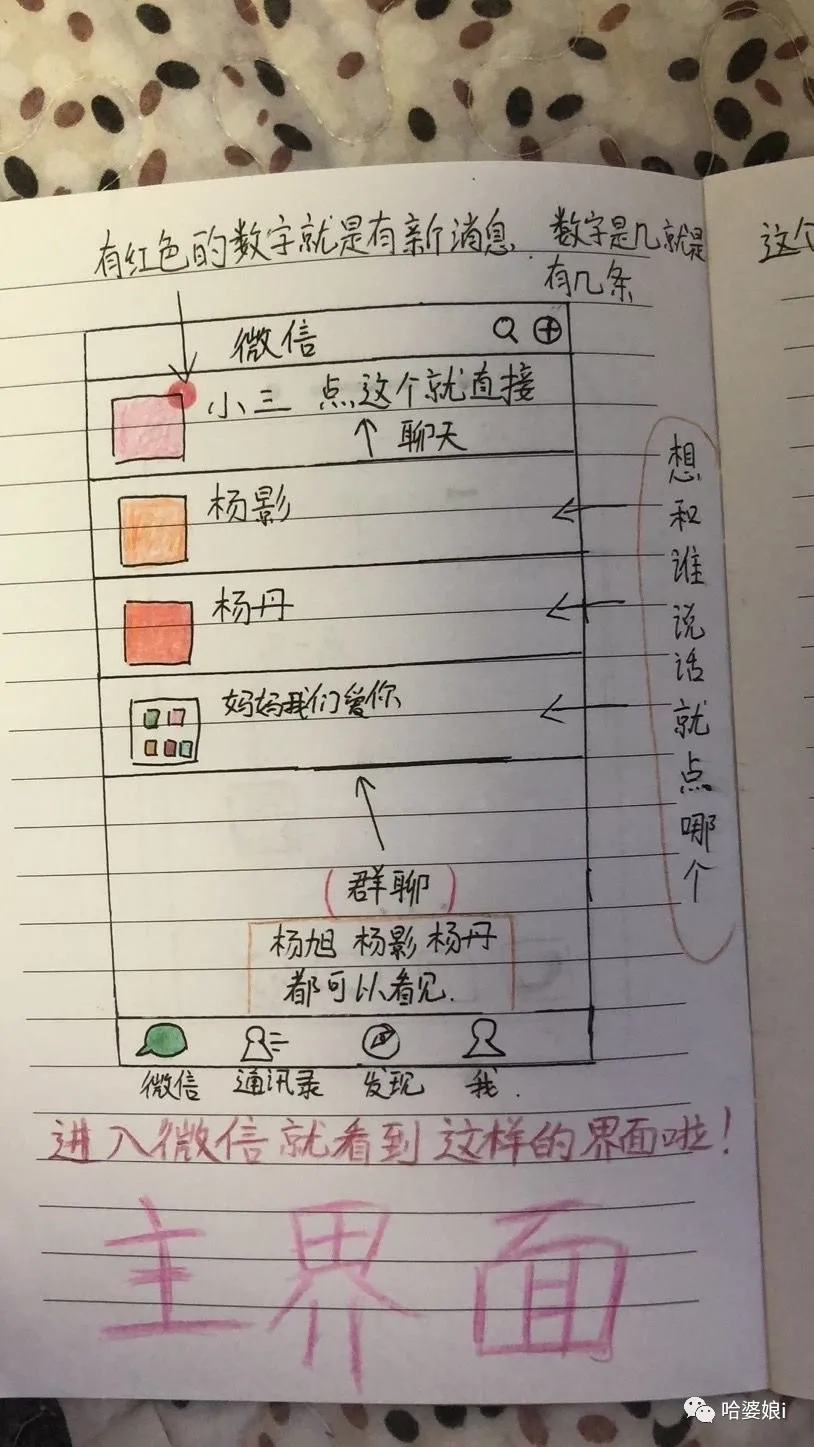 有红色的数字就是有新消息. 数字是几就是
有几条
这个
微信
小三 点这个就直接
聊天
杨影
杨丹
妈妈我们爱你
想和谁说话就点哪个
(群聊)
杨旭 杨影 杨丹
都可以看见.
微信 通讯录 发现 我.
进入微信就看到这样的界面啦!
主界面
哈婆娘i